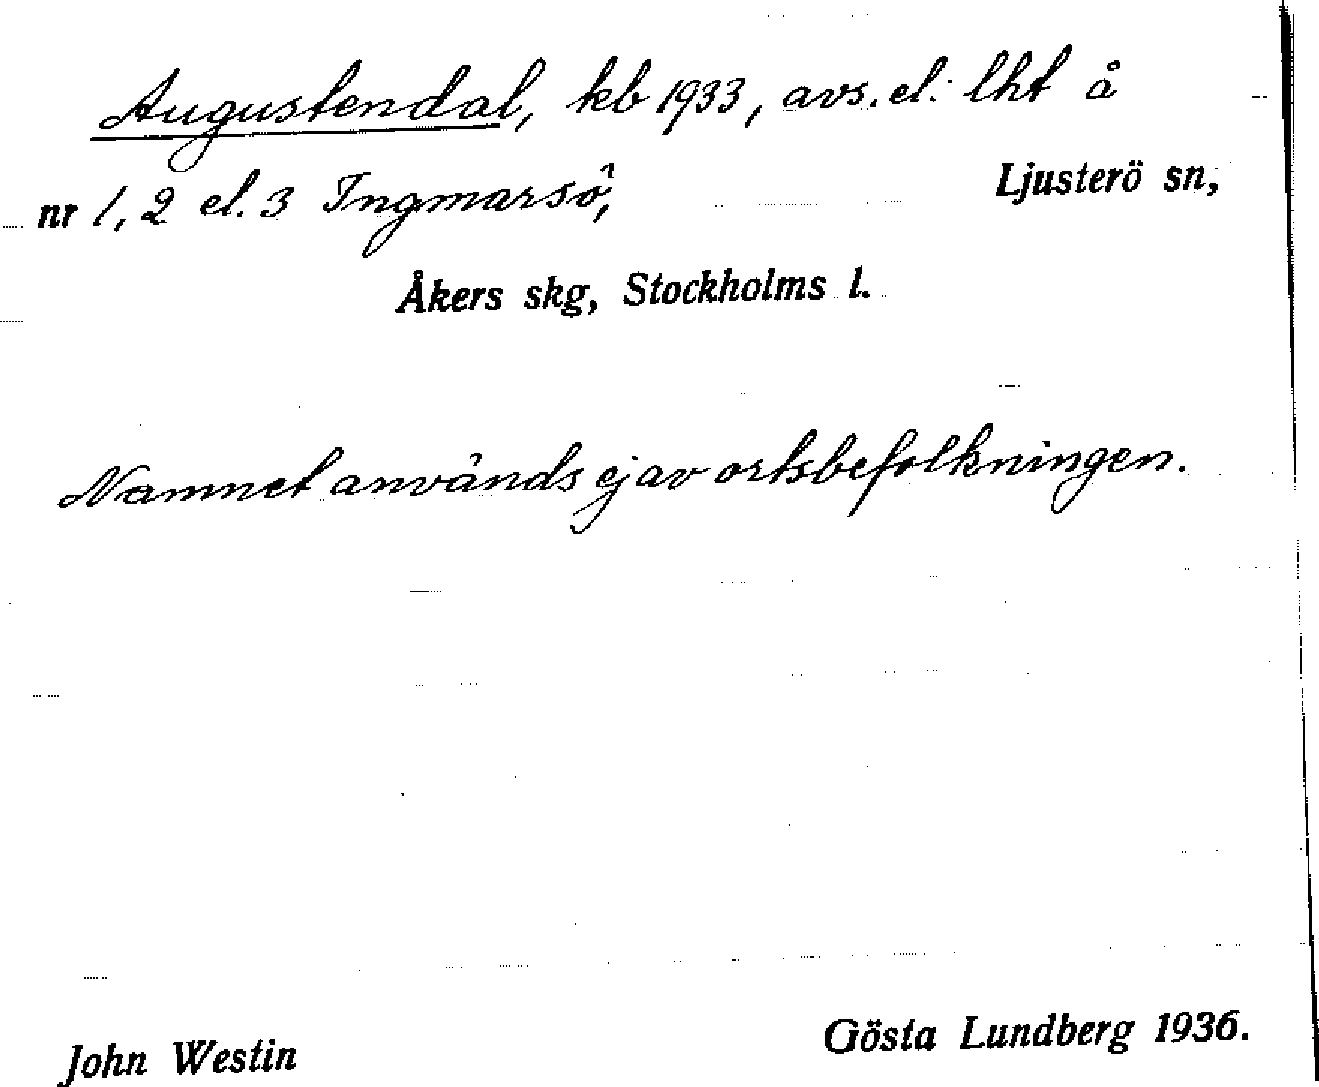 Augustendal, kb 1933, avs. el. lht å
nr 1, 2 el. 3 Ingmarsö, Ljusterö sn,
Åkers skg, Stockholms l.
Namnet används ej av ortsbefolkningen.
John Westin Gösta Lundberg 1936.